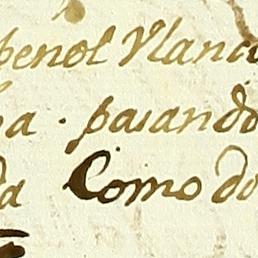 penol Vlanc
sa · pasando
da Como do